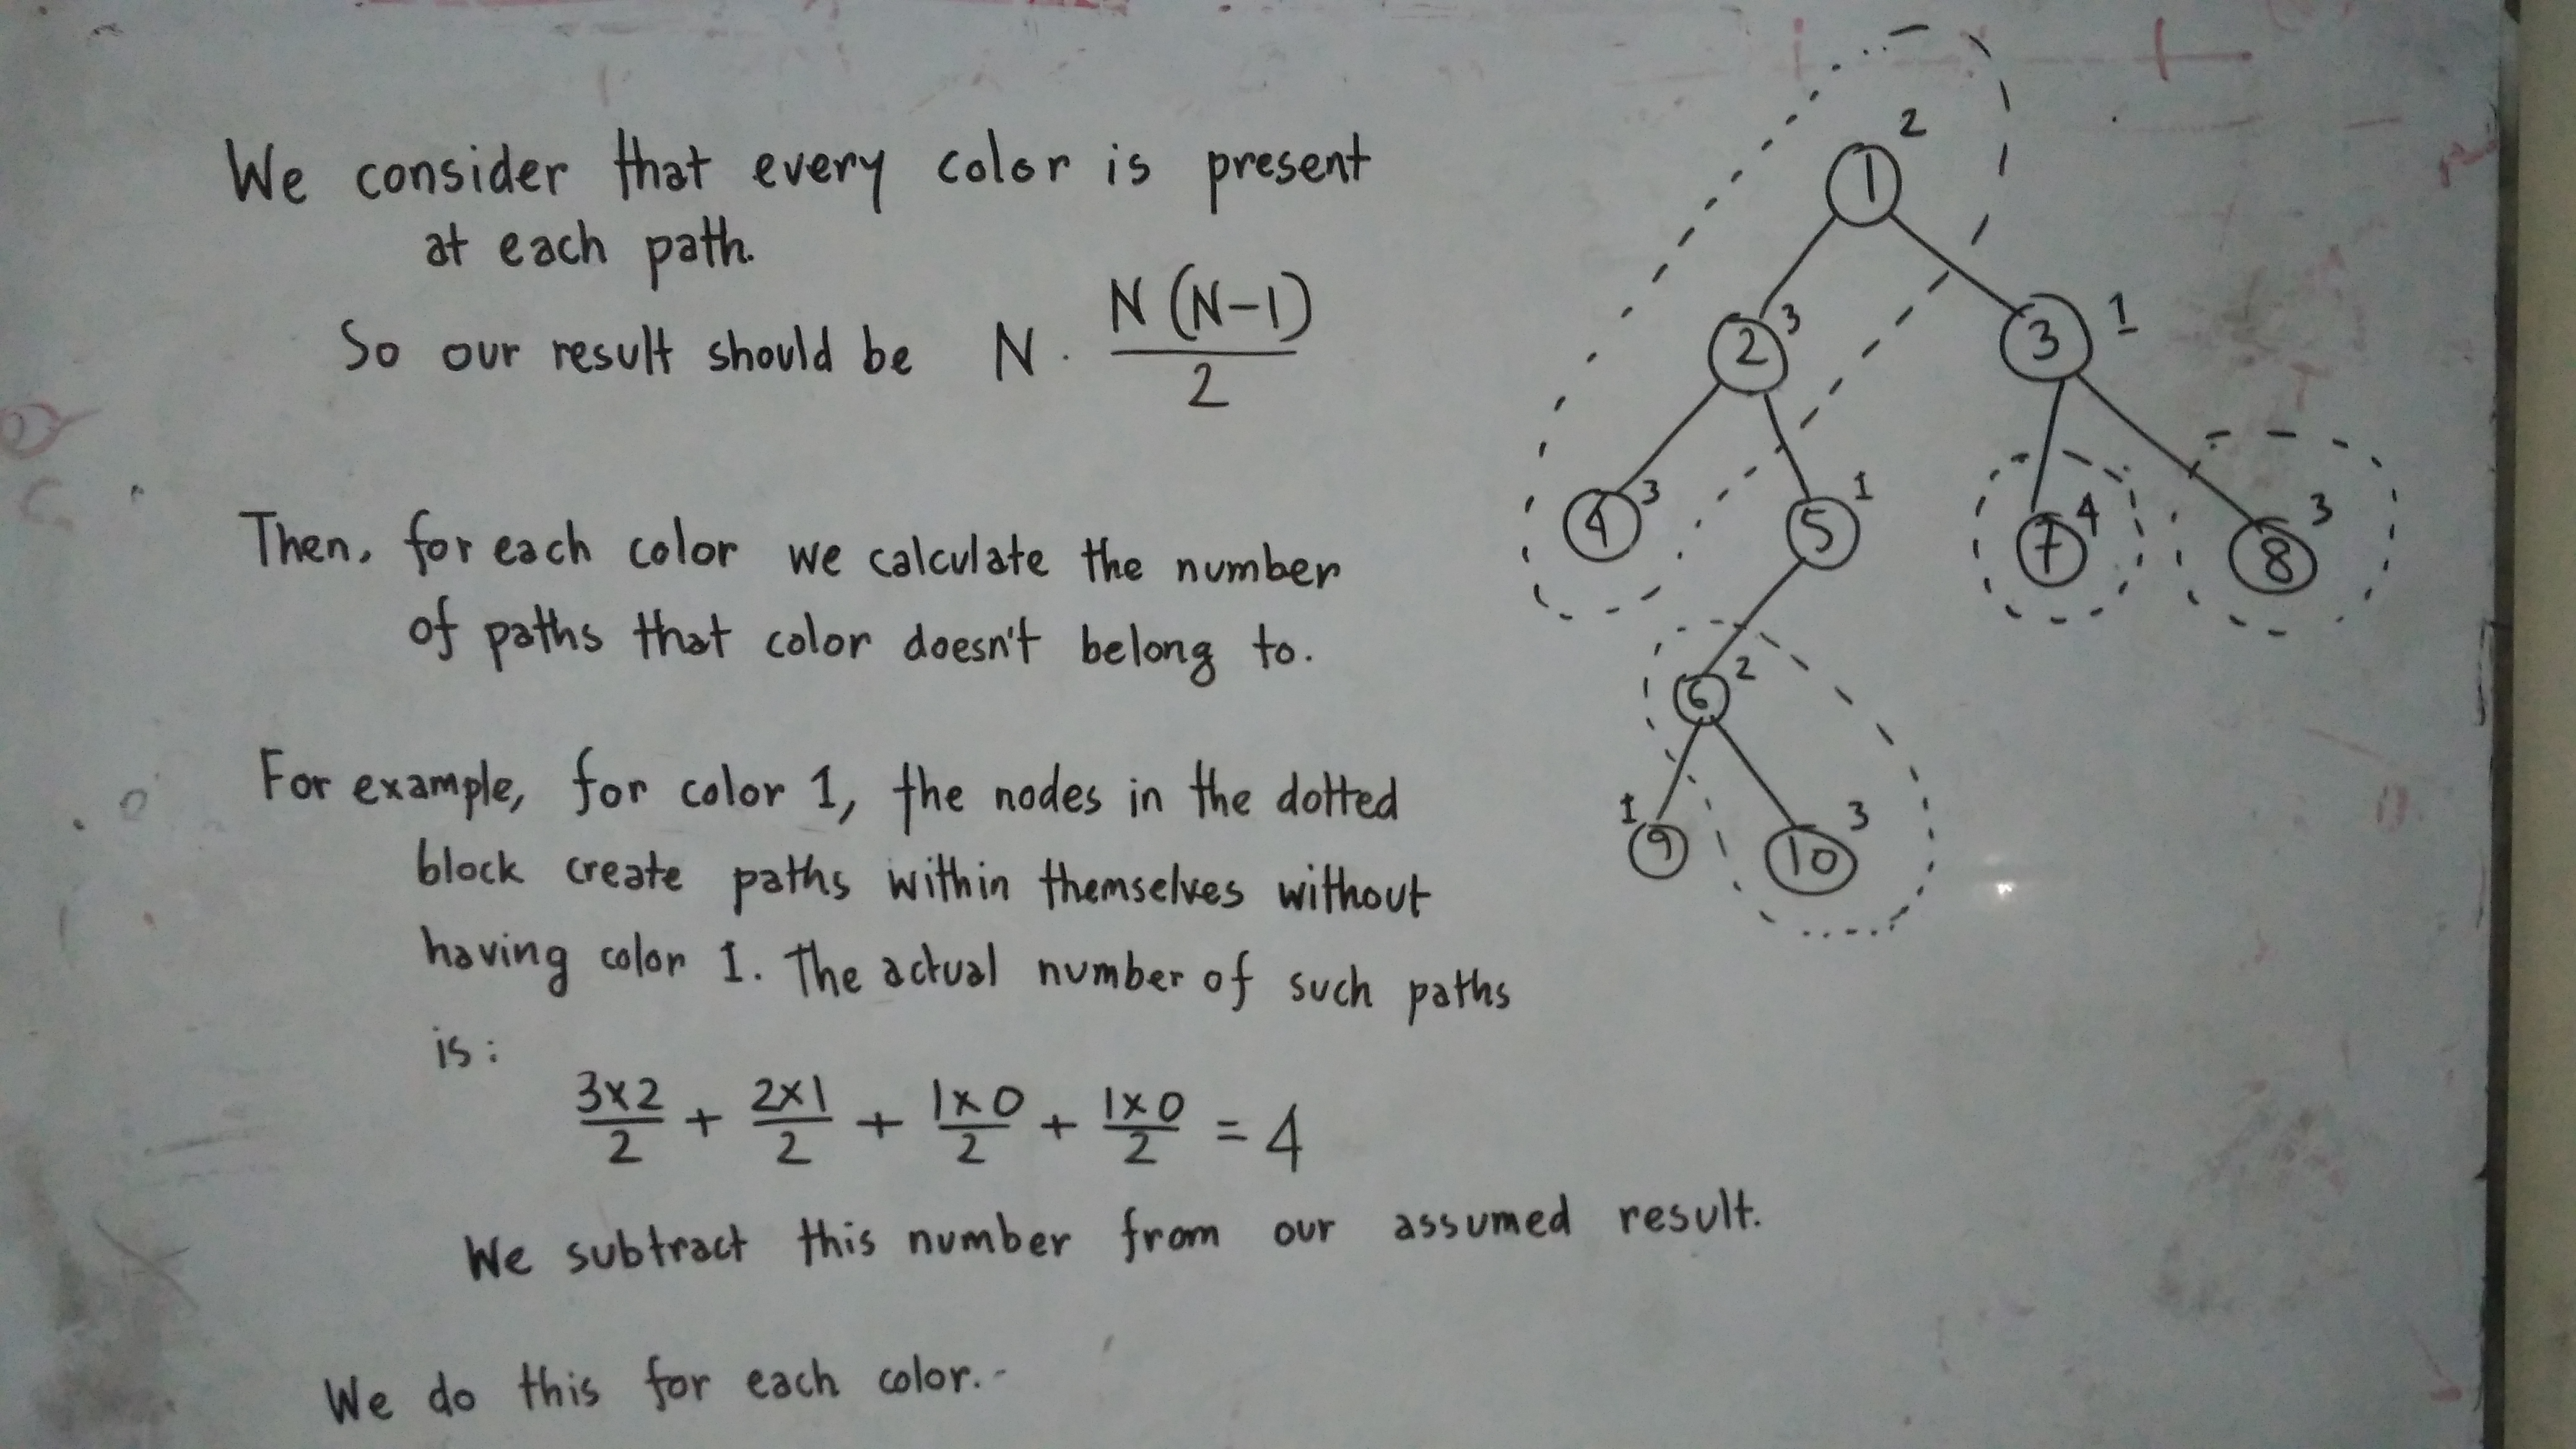 We consider that every color is present
at each path.
So our result should be N . N (N-1) / 2
Then, for each color we calculate the number
of paths that color doesn't belong to.
For example, for color 1, the nodes in the dotted
block create paths within themselves without
having color 1. The actual number of such paths
is:
3x2/2 + 2x1/2 + 1x0/2 + 1x0/2 = 4
We subtract this number from our assumed result.
We do this for each color.
2
1
3
2
1
3
3
4
1
5
4
7
3
8
2
6
1
9
3
10